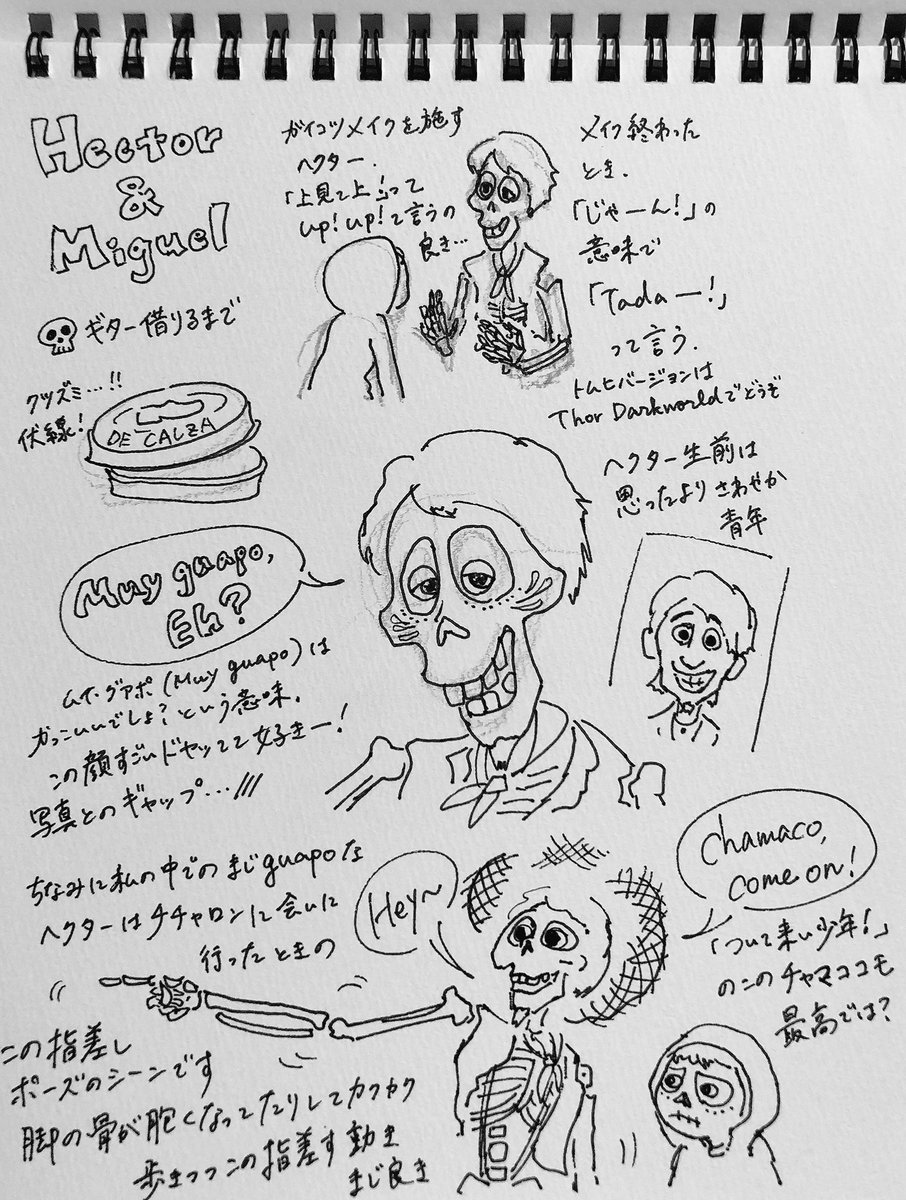 Hector
&
Miguel
ギター借りるまで
クツズミ…!!
伏線!
DE CALZA
ガイコツメイクを施す
ヘクター.
「上見て上!」って
up! up!って言うの
良き…
メイク終わった
とき.
「じゃーん!」の
意味で
「Tadaー!」
って言う.
トムヒバージョンは
Thor Darkworldでどうぞ
ヘクター生前は
思ったよりさわやか
青年
Muy guapo,
Eh?
ムイ・グアポ(Muy guapo)は
かっこいいでしょ?という意味.
この顔すごいドヤッてて好きー!
写真とのギャップ…///
ちなみに私の中でのまじguapoな
ヘクターはチチャロンに会いに
行ったときの
Hey~
chamaco,
come on!
「ついて来い少年!」
のこのチャマココも
最高では?
この指差し
ポーズのシーンです
脚の骨が脆くなってたりしてカクカク
歩きつつこの指差す動き
まじ良き